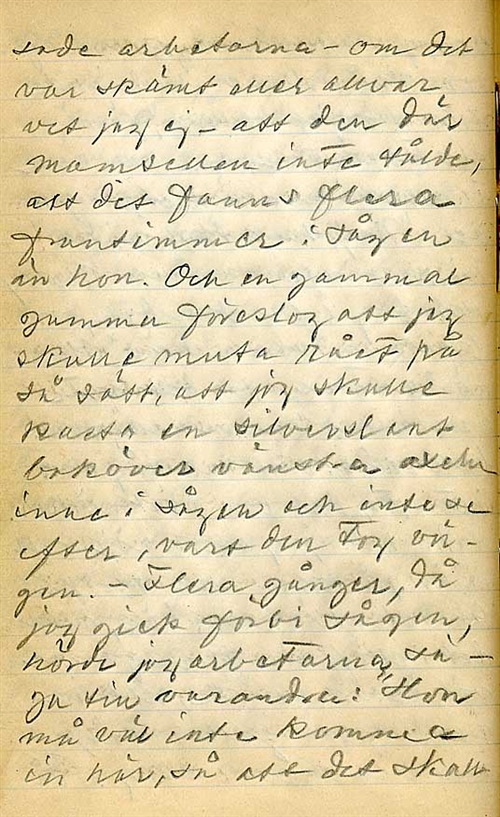 sade arbetarna – om det
var skämt eller allvar
vet jag ej – att den där
mamsellen inte tålde,
att det fanns flera
fruntimmer i sågen
än hon. Och en gammal
gumma föreslog att jag
skulle muta rået på
så sätt, att jag skulle
kasta en silverslant
baköver vänstra axeln
inne i sågen och inte se
efter, vart den tog vä-
gen. – Flera gånger, då
jag gick förbi sågen,
hörde jag arbetarna sä-
ga till varandra: "Hon
må väl inte komma
in här, så att det skall